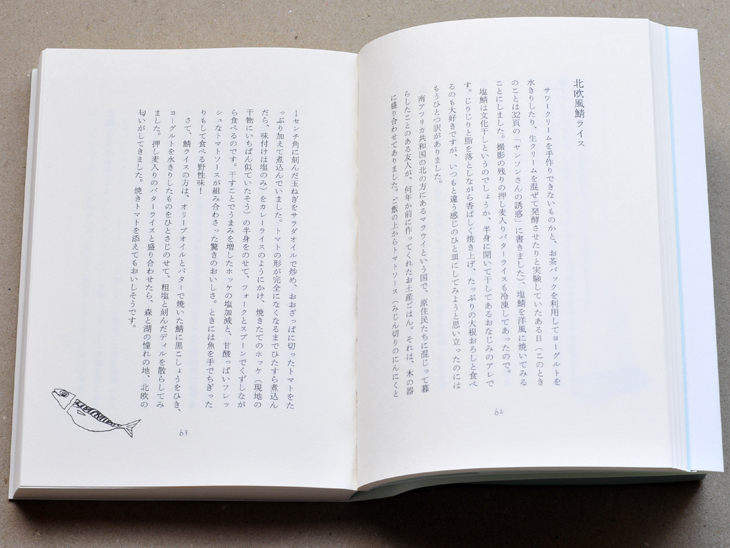 北欧風鯖ライス
サワークリームを手作りできないものかと、お茶パックを利用してヨーグルトを
水きりしたり、生クリームを混ぜて発酵させたりと実験していたある日（このとき
のことは32頁の「ヤンソンさんの誘惑」に書きました）、塩鯖を洋風に焼いてみる
ことにしました。撮影の残りの押し麦入りバターライスも冷凍してあったので。
塩鯖は文化干しというのでしょうか、半身に開いて干してあるおなじみのアレで
す。じりじりと脂を落としながら香ばしく焼き上げ、たっぷりの大根おろしと食べ
るのも大好きですが、いつもと違う感じのひと皿にしてみようと思い立ったのには
もうひとつ訳がありました。
南アフリカ共和国の北の方にあるマラウイという国で、原住民たちに混じって暮
らしたことのある友人が、何年か前に作ってくれたお土産ごはん。それは、木の器
に盛り合わせてありました。ご飯の上からトマトソース（みじん切りのにんにくと
62
1センチ角に刻んだ玉ねぎをサラダオイルで炒め、おおざっぱに切ったトマトをた
っぷり加えて煮込んでいました。トマトの形が完全になくなるまでひたすら煮込ん
だら、味付けは塩のみ）をカレーライスのようにかけ、焼きたてのホッケ（現地の
干物にいちばん似ていたそう）の半身をのせて、フォークとスプーンでくずしなが
ら食べるのです。干すことでうまみを増したホッケの塩加減と、甘酸っぱいフレッ
シュなトマトソースが組み合わさった驚きのおいしさ。ときには魚を手でちぎった
りもして食べる野性味！
さて、鯖ライスの方は、オリーブオイルとバターで焼いた鯖に黒こしょうをひき、
ヨーグルトを水きりしたものをひとさじのせて、粗塩と刻んだディルを散らしてみ
ました。押し麦入りのバターライスと盛り合わせたら、森と湖の憧れの地、北欧の
匂いがしてきました。焼きトマトを添えてもおいしそうです。
63